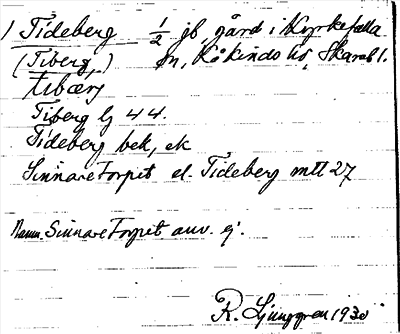 1 Tideberg 1/2 jb, gård i Kyrkefalla
(Tiberg,) sn, Kåkinds hd, Skarab l.
tibærj
Tiberg lj 44.
Tideberg bek, ek
Sinnaretorpet el. Tideberg mtl 27
Namn. Sinnaretorpet anv. ej.
R. Ljunggren 1930